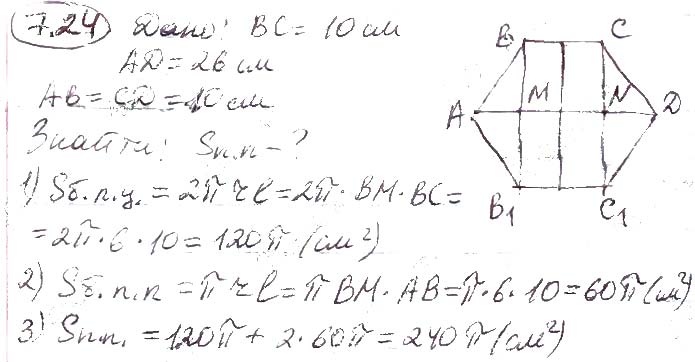 7.24 Дано: BC = 10 см
AD = 26 см
AB = CD = 10 см
Знайти: Sп.п - ?
1) Sб.п.ц. = 2πrl = 2π · BM · BC =
= 2π · 6 · 10 = 120π (см²)
2) Sб.п.п = πrl = π BM · AB = π · 6 · 10 = 60π (см²)
3) Sп.п. = 120π + 2 · 60π = 240π (см²)
B C
A M N D
B₁ C₁